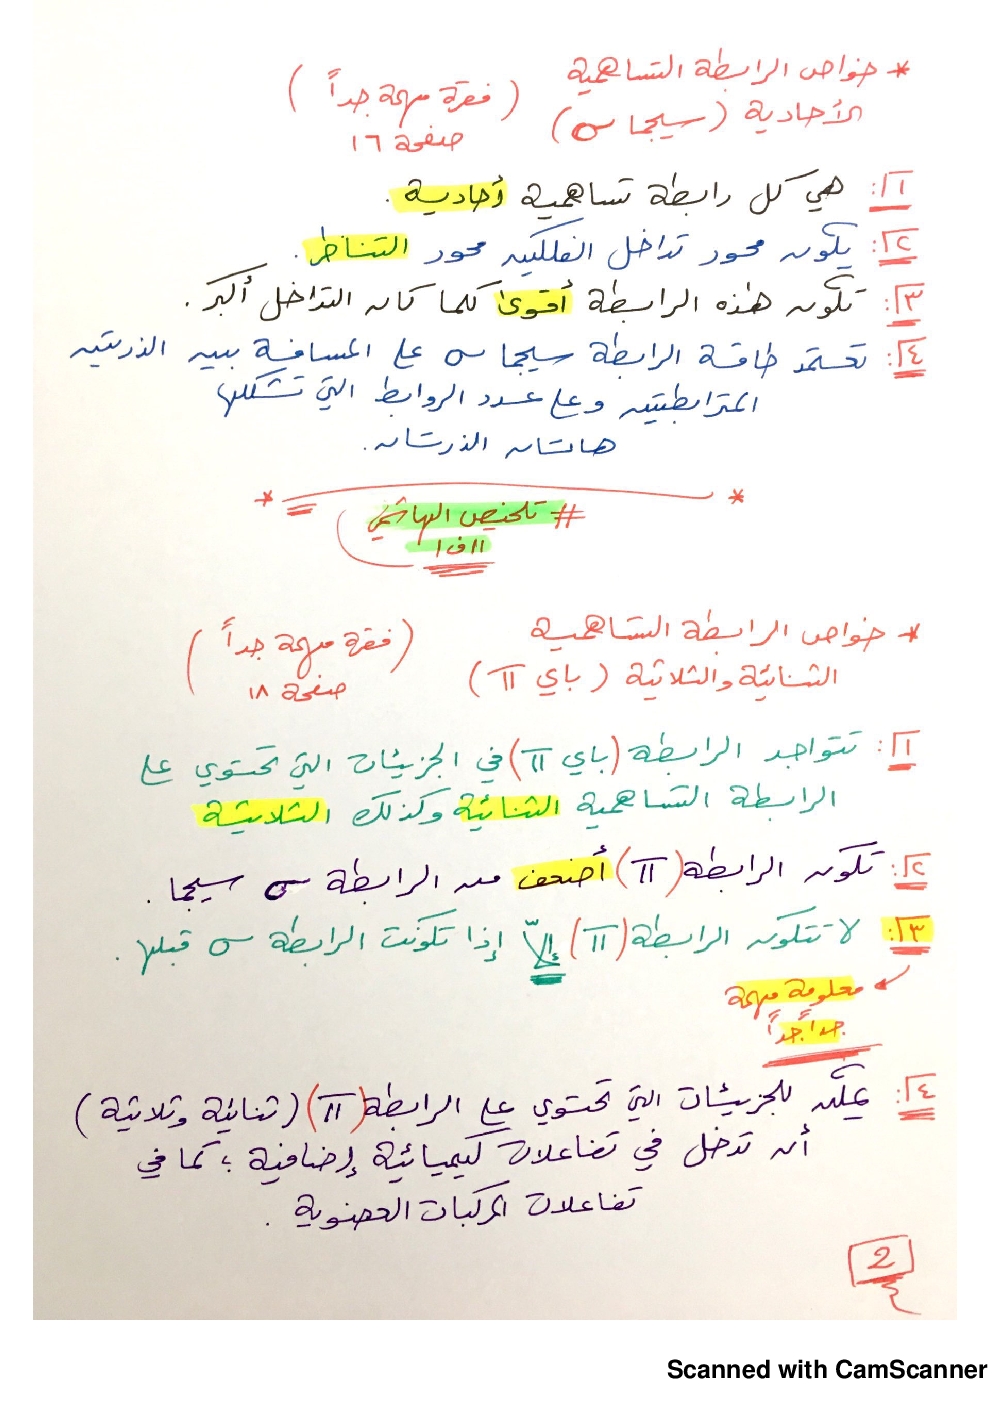 * خواص الرابطة التساهمية
الأحادية (سيجما σ) (فقرة مهمة جداً
صفحة ١٦)
١: هي كل رابطة تساهمية أحادية.
٢: يكون محور تداخل الفلكين محور التناظر.
٣: تكون هذه الرابطة أقوى كلما كان التداخل أكبر.
٤: تعتمد طاقة الرابطة سيجما σ على المسافة بين الذرتين
المترابطتين وعلى عدد الروابط التي تشكلها
هاتان الذرتان.
* *
# تلخيص الهاشمي
١١ف١
* خواص الرابطة التساهمية
الثنائية والثلاثية (باي π) (فقرة مهمة جداً
صفحة ١٨)
١: تتواجد الرابطة (باي π) في الجزيئات التي تحتوي على
الرابطة التساهمية الثنائية وكذلك الثلاثية
٢: تكون الرابطة (π) أضعف من الرابطة σ سيجما.
٣: لا تتكون الرابطة (π) إلّا إذا تكونت الرابطة σ قبلها.
معلومة مهمة
جداً جداً
٤: يمكن للجزيئات التي تحتوي على الرابطة (π) (ثنائية وثلاثية)
أن تدخل في تفاعلات كيميائية إضافية؛ كما في
تفاعلات المركبات العضوية.
2
Scanned with CamScanner